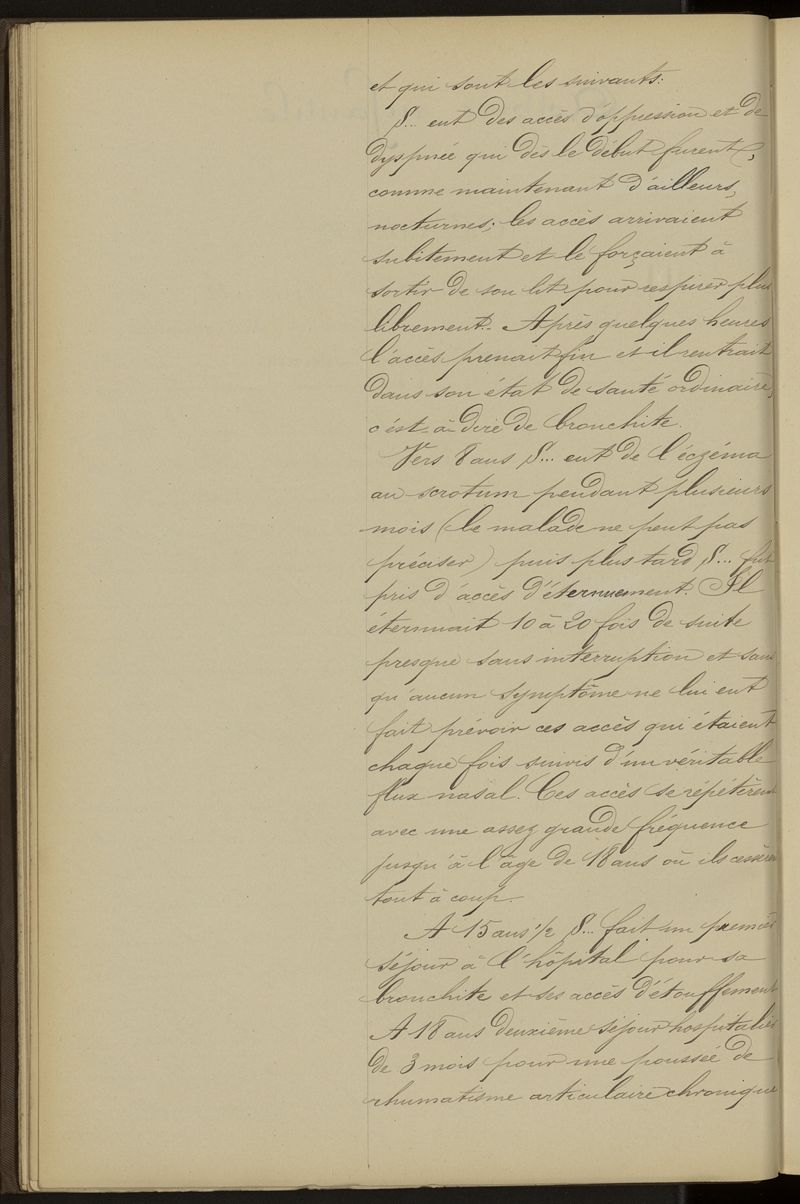 et qui sont les suivants:
S... eut des accès d'oppression et de
dyspnée qui dès le début furent,
comme maintenant d'ailleurs,
nocturnes; les accès arrivaient
subitement et le forçaient à
sortir de son lit pour respirer plus
librement. Après quelques heures
l'accès prenait fin et il rentrait
dans son état de santé ordinaire,
c'est-à-dire de bronchite.
Vers 8 ans S... eut de l'éczéma
au scrotum pendant plusieurs
mois (le malade ne peut pas
préciser) puis plus tard S... fut
pris d'accès d'éternuement. Il
éternuait 10 à 20 fois de suite
presque sans interruption et sans
qu'aucun symptôme ne lui eut
fait prévoir ces accès qui étaient
chaque fois suivis d'un véritable
flux nasal. Ces accès se répétèrent
avec une assez grande fréquence
jusqu'à l'âge de 18 ans où ils cessèrent
tout à coup.
A 15 ans 1/2 S... fait un premier
séjour à l'hôpital pour sa
bronchite et ses accès d'étouffement
A 18 ans deuxième séjour hospitalier
de 3 mois pour une poussée de
rhumatisme articulaire chronique